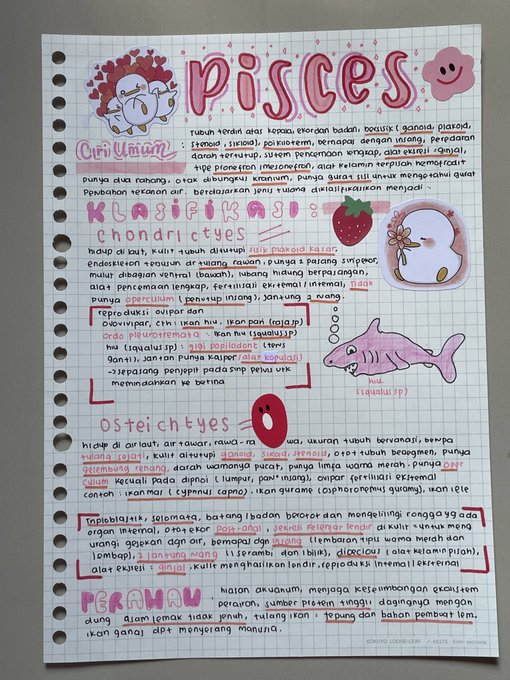 Pisces
Ciri Umum
tubuh terdiri atas kepala, ekor dan badan, bersisik (ganoid, plakoid,
: stenoid, sikloid), poikiloterm, bernapas dengan insang, peredaran
darah tertutup, sistem pencernaan lengkap, alat eksresi : ginjal,
tipe pronefron (mesonefron), alat kelamin terpisah hemofradit
punya dua rahang, otak dibungkus kranium, punya gurat sisi untuk mengetahui gurat
perubahan tekanan air. berdasarkan jenis tulang diklasifikasikan menjadi :
KLASIFIKASI :
chondrictyes
hidup di laut, kulit tubuh ditutupi sisik plakoid kasar,
endoskleton tersusun dr tulang rawan, punya 2 pasang sirip ekor,
mulut dibagian ventral (bawah), lubang hidung berpasangan,
alat pencernaan lengkap, fertilisasi eksternal/internal, tidak
punya operculum (penutup insang), jantung 2 ruang.
reproduksi ovipar dan
ovovivipar, cth : ikan hiu, ikan pari (raja sp)
ordo pleurotremata : ikan hiu (squalus sp)
hiu (squalus sp) : gigi popilodont (terus
ganti), jantan punya kasper/alat kopulasi
→ sepasang penjepit pada sirip pelvis utk
memindahkan ke betina
hiu
(squalus sp)
Osteichtyes =
hidup di air laut, air tawar, rawa-rawa, ukuran tubuh bervariasi, berupa
tulang sejati, kulit ditutupi ganoid, sikoid, stenoid, otot tubuh bersegmen, punya
gelembung renang, darah warnanya pucat, punya limfa warna merah. punya oper
culum kecuali pada dipnoi (lumpur, paru² insang), ovipar fertilisasi eksternal
contoh : ikan mas (cyprinus caprio), ikan gurame (osphoronemus guramy), ikan lele
triploblastik, selomata, batang/badan berotot dan mengelilingi rongga yg ada
organ internal, otot ekor post-anal, sekresi kelenjar lendir di kulit untuk meng
urangi gesekan dgn air, bernapas dgn insang (lembaran tipis warna merah dan
lembap), 2 jantung ruang (1 serambi dan 1 bilik), dioecious (alat kelamin pisah),
alat eksresi : ginjal, kulit menghasilkan lendir, reproduksi internal/eksternal
PERANAN : hiasan akuarium, menjaga keseimbangan ekosistem
perairan, sumber protein tinggi, dagingnya mengan
dung asam lemak tidak jenuh, tulang ikan : tepung dan bahan pembuat lem.
ikan ganas dpt menyerang manusia.
KOKUYO LOOSE-LEAF